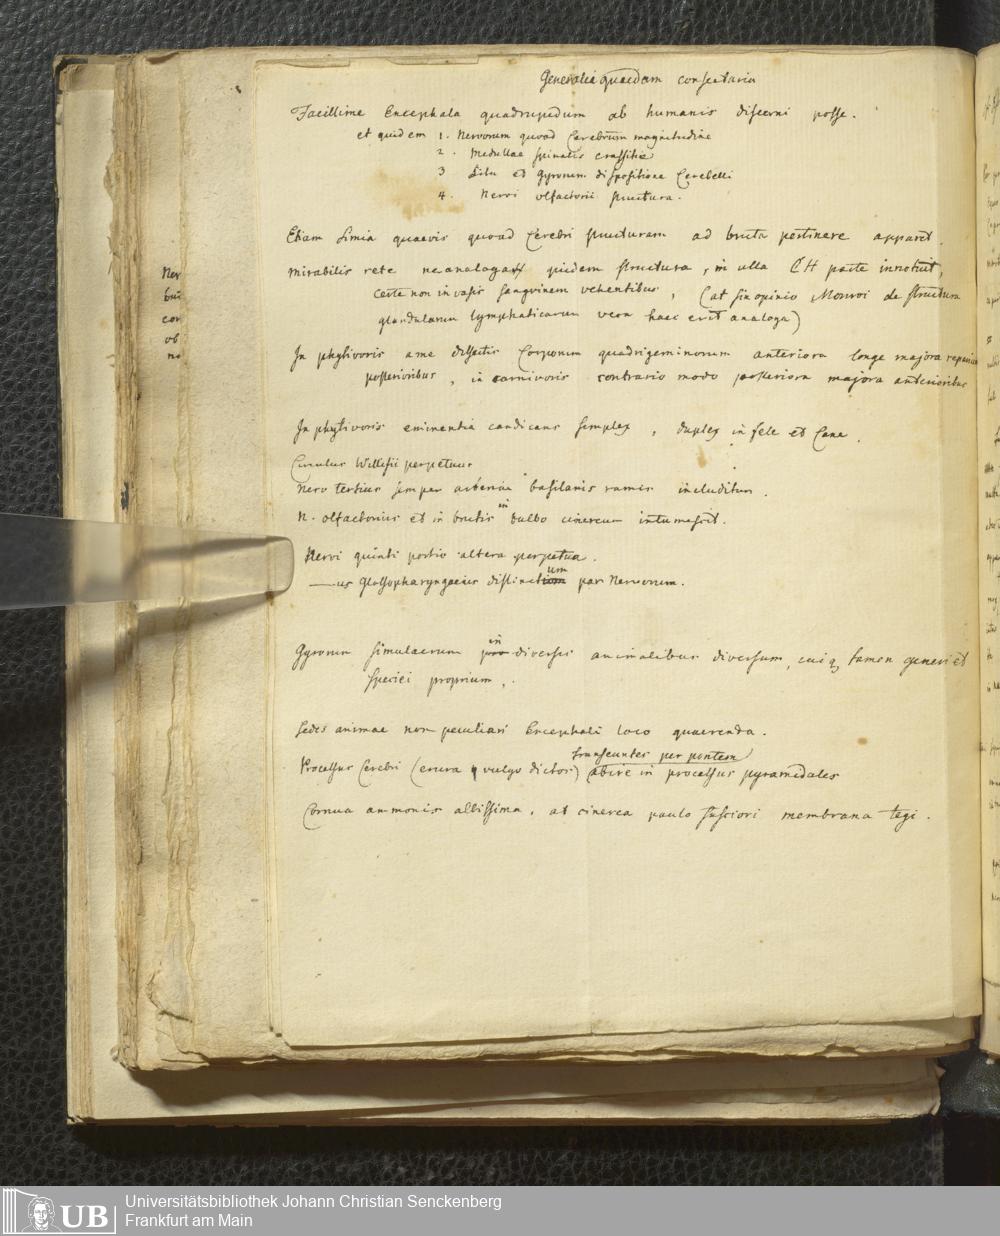 Generalia quaedam consectaria
Facillime Encephala quadrupedum ab humanis discerni posse.
et quidem 1. Nervorum quoad Cerebrum magnitudine
2. Medullae spinalis crassitie
3 Situ et Gyrorum dispositione Cerebelli
4. Nervi olfactorii structura.
Etiam Simia quaevis quoad Cerebri structuram ad bruta pertinere apparet.
Mirabilis rete ne analoga quidem structura, in ulla CH parte innotuit,
certe non in vasis sanguinem vehentibus, (at si opinio Monroi de structura
glandularum lymphaticarum vera haec erit analoga)
In phytivoris a me dissectis Corporum quadrigeminorum anteriora longe majora
posterioribus, in carnivoris contrario modo posteriora majora anterioribus
In phytivoris eminentia candicans simplex, duplex in fele et Cane.
Circulus Willisii perpetuus
Nerv tertius semper arteriae basilaris ramis includitur.
N. olfactorius et in brutis in bulbo cinereum intumescit.
Nervi quinti portio altera perpetua.
—us Glossopharyngaeus distinctum par Nervorum.
Gyrorum simulacrum in diversis animalibus diversum, cuiq tamen generi et
speciei proprium,.
Sedes animae non peculiari Encephali loco quaerenda.
transeuntes per pontem
Processus Cerebri (crura vulgo dictos) abire in processus pyramidales
Cornua ammonis albissima, at cinerea paulo fusciori membrana tegi.
Ner
con
ob
Universitätsbibliothek Johann Christian Senckenberg
Frankfurt am Main
UB